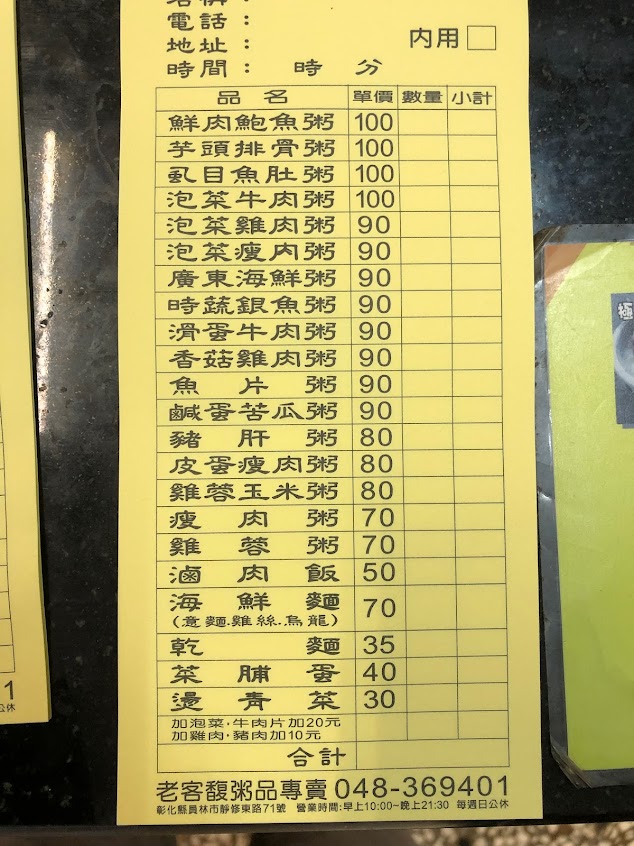 電話：
地址：
內用□
時間： 時 分
品名 單價 數量 小計
鮮肉鮑魚粥 100
芋頭排骨粥 100
虱目魚肚粥 100
泡菜牛肉粥 100
泡菜雞肉粥 90
泡菜瘦肉粥 90
廣東海鮮粥 90
時蔬銀魚粥 90
滑蛋牛肉粥 90
香菇雞肉粥 90
魚片粥 90
鹹蛋苦瓜粥 90
豬肝粥 80
皮蛋瘦肉粥 80
雞蓉玉米粥 80
瘦肉粥 70
雞蓉粥 70
滷肉飯 50
海鮮麵 70
(意麵.雞絲.烏龍)
乾麵 35
菜脯蛋 40
燙青菜 30
加泡菜·牛肉片加20元
加雞肉·豬肉加10元
合計
老客馥粥品專賣 048-369401
彰化縣員林市靜修東路71號 營業時間:早上10:00~晚上21:30 每週日公休
1
公休
極